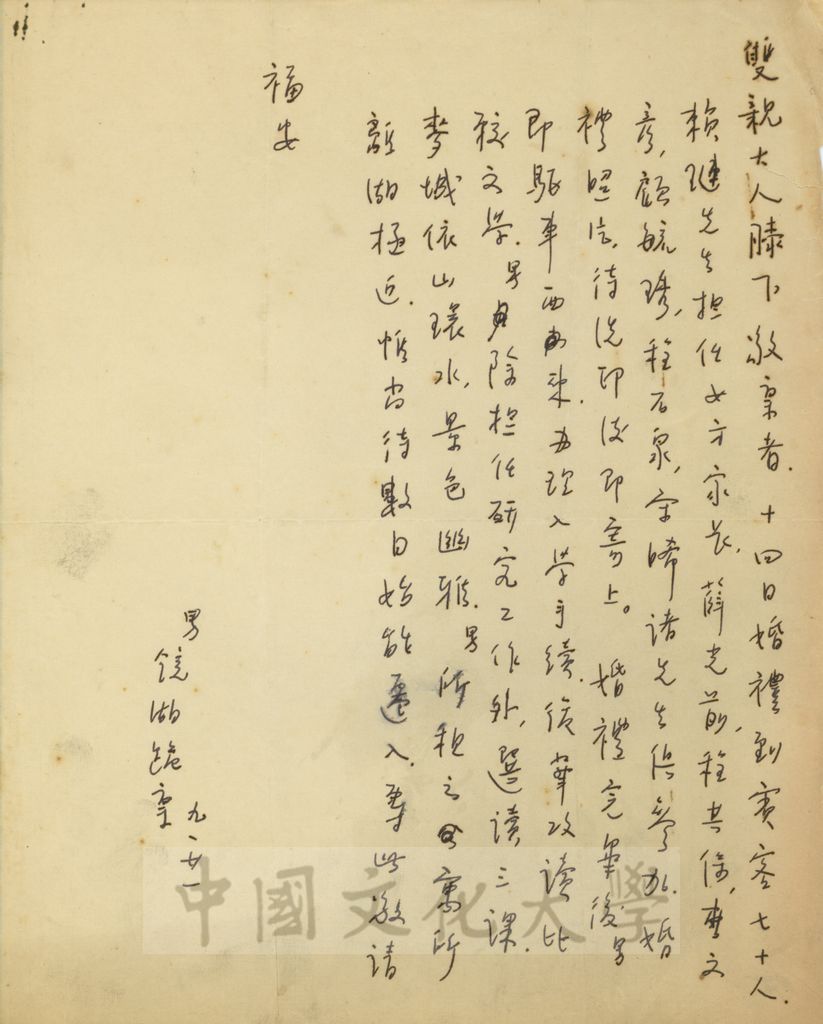 雙親大人膝下敬稟者.十四日婚禮到賓客七十人.
賴璉先生担任女方家長,薛光前,程其保,李文
彥,顧毓琇,程石泉,宋晞諸先生俱參加.婚
禮照片,待洗印後即寄上。婚禮完畢後,男
即驅車西來.辦理入學手續.倍華攻讀比
較文學.男除担任研究工作外,選讀三課.
麥城依山環水,景色幽雅.男所租之寓所
離湖極近.惟尚待數日始能遷入.專此敬請
福安
男鏡湖跪稟
九一廿一
中國文化大學